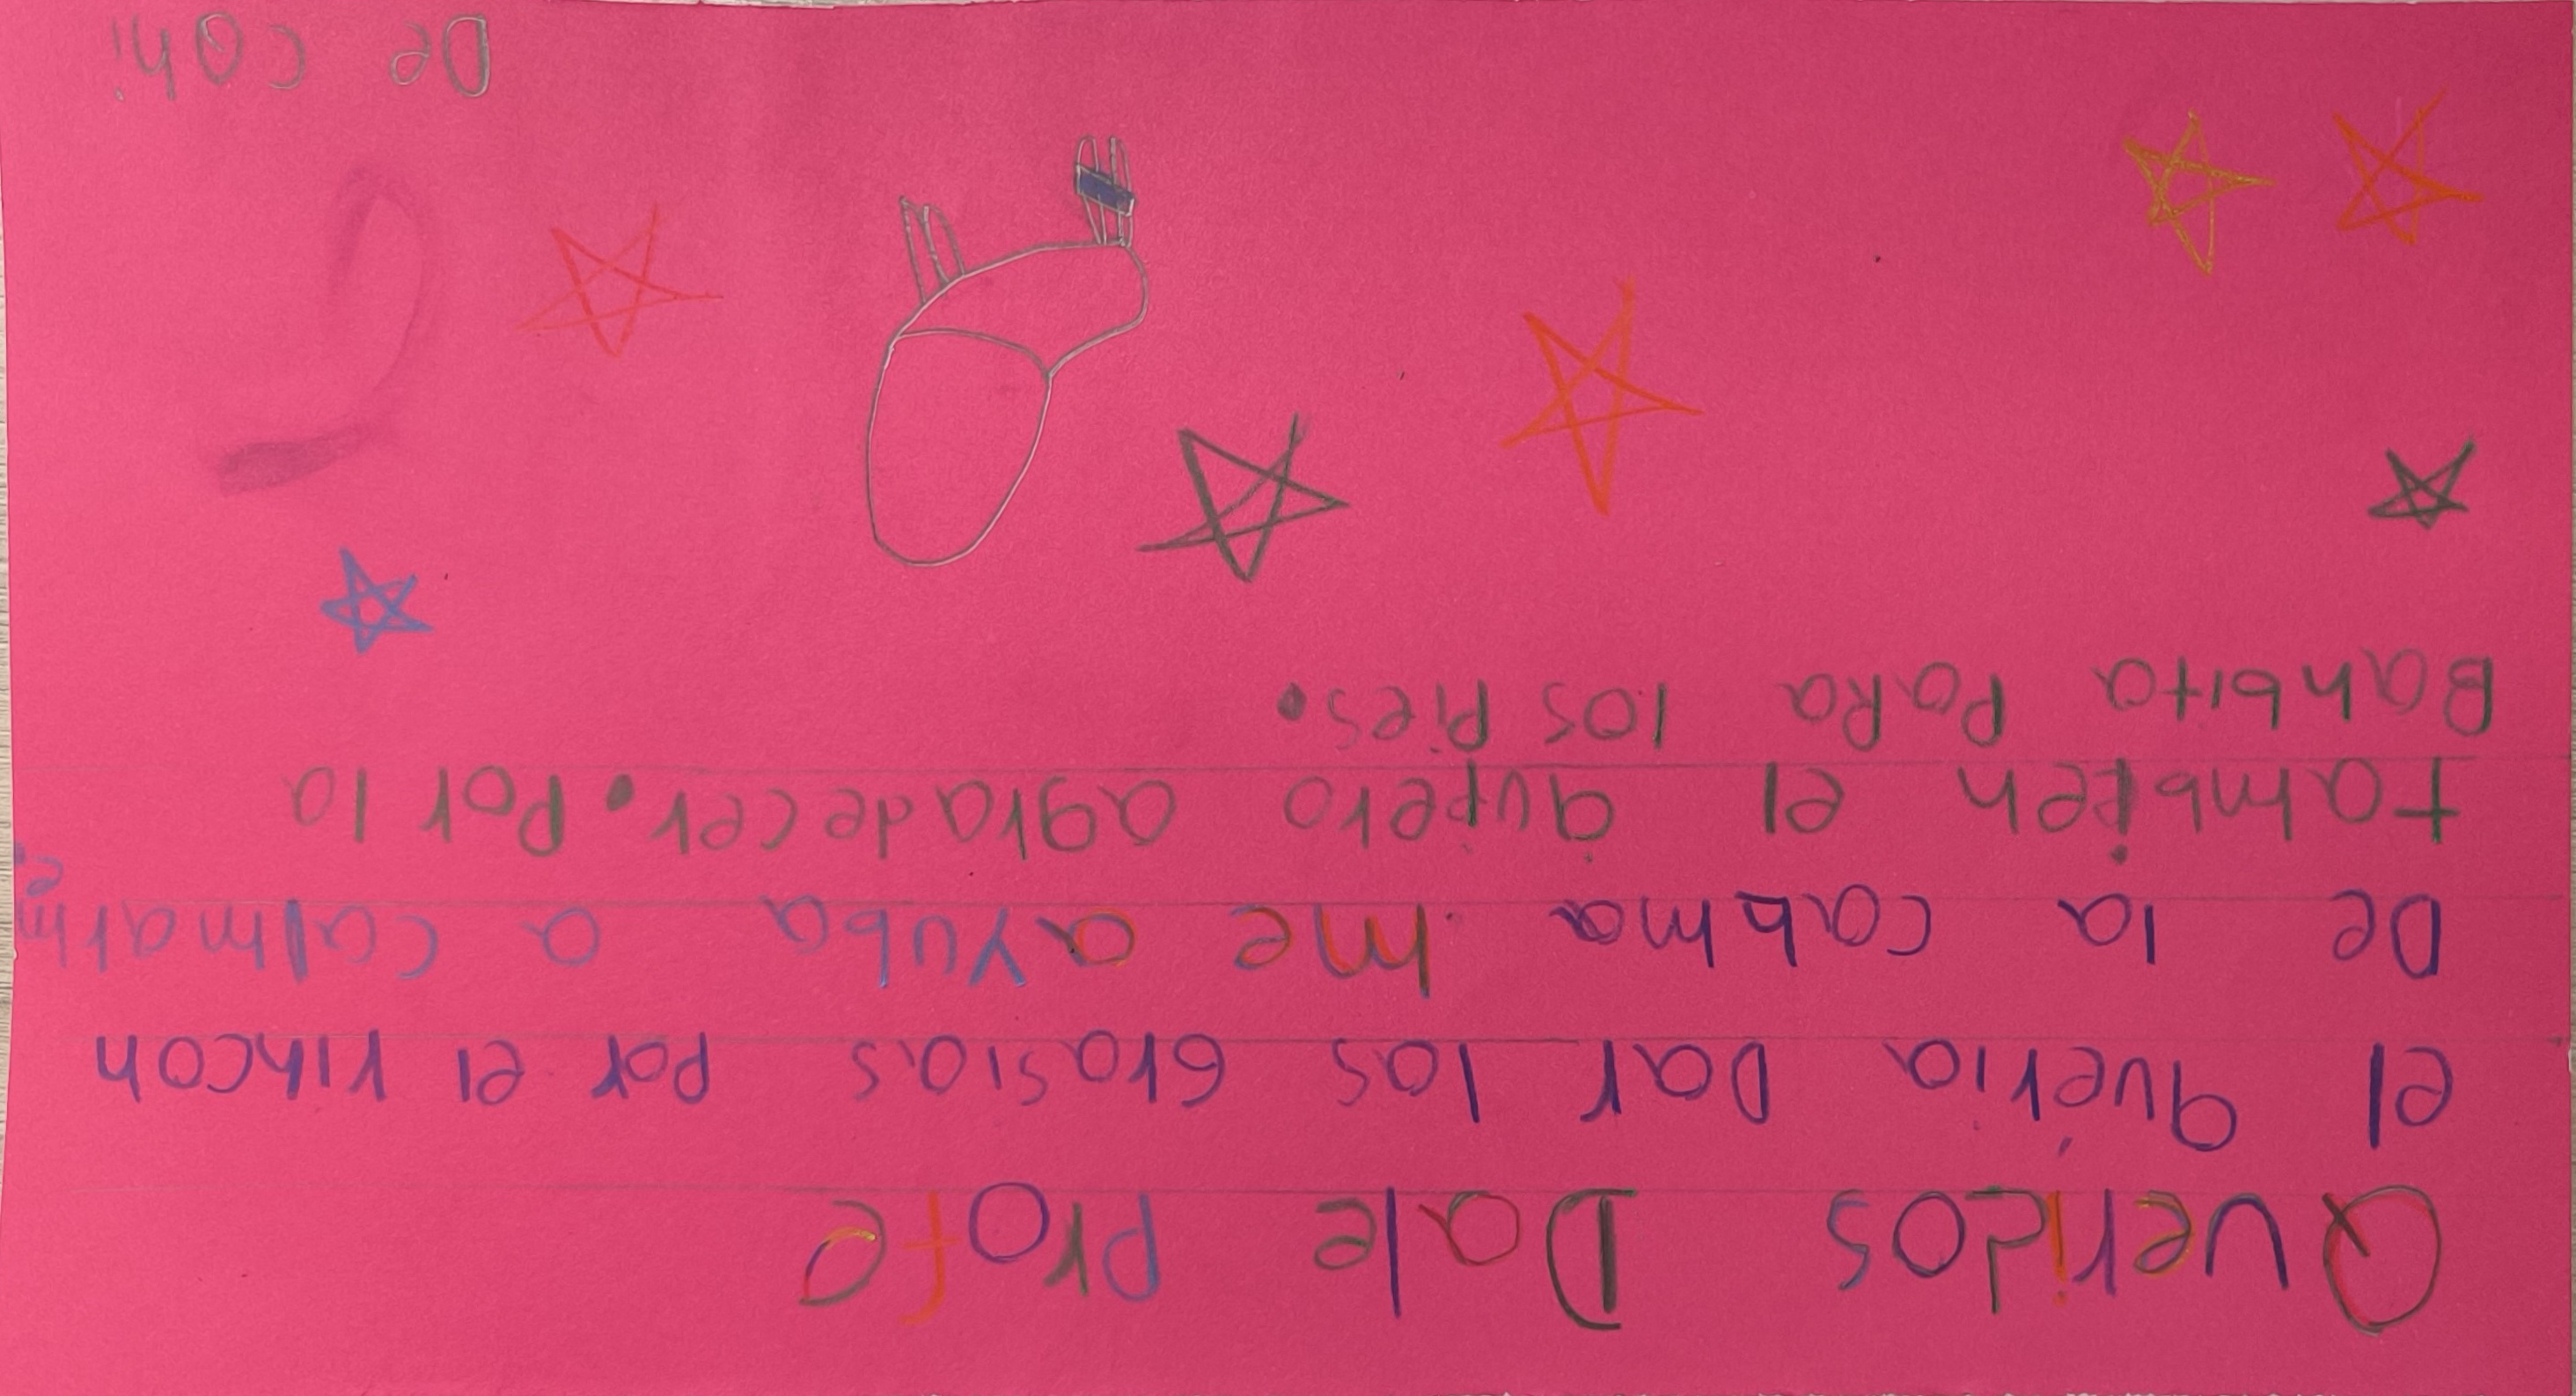 Queridos Dale Profe
el queria Dar las Grasias por el rincon
De la cabma me ayuba a calmarme,
tambien el quiero agradecer. Por la
Banbita PaRa los Pies.
De coni